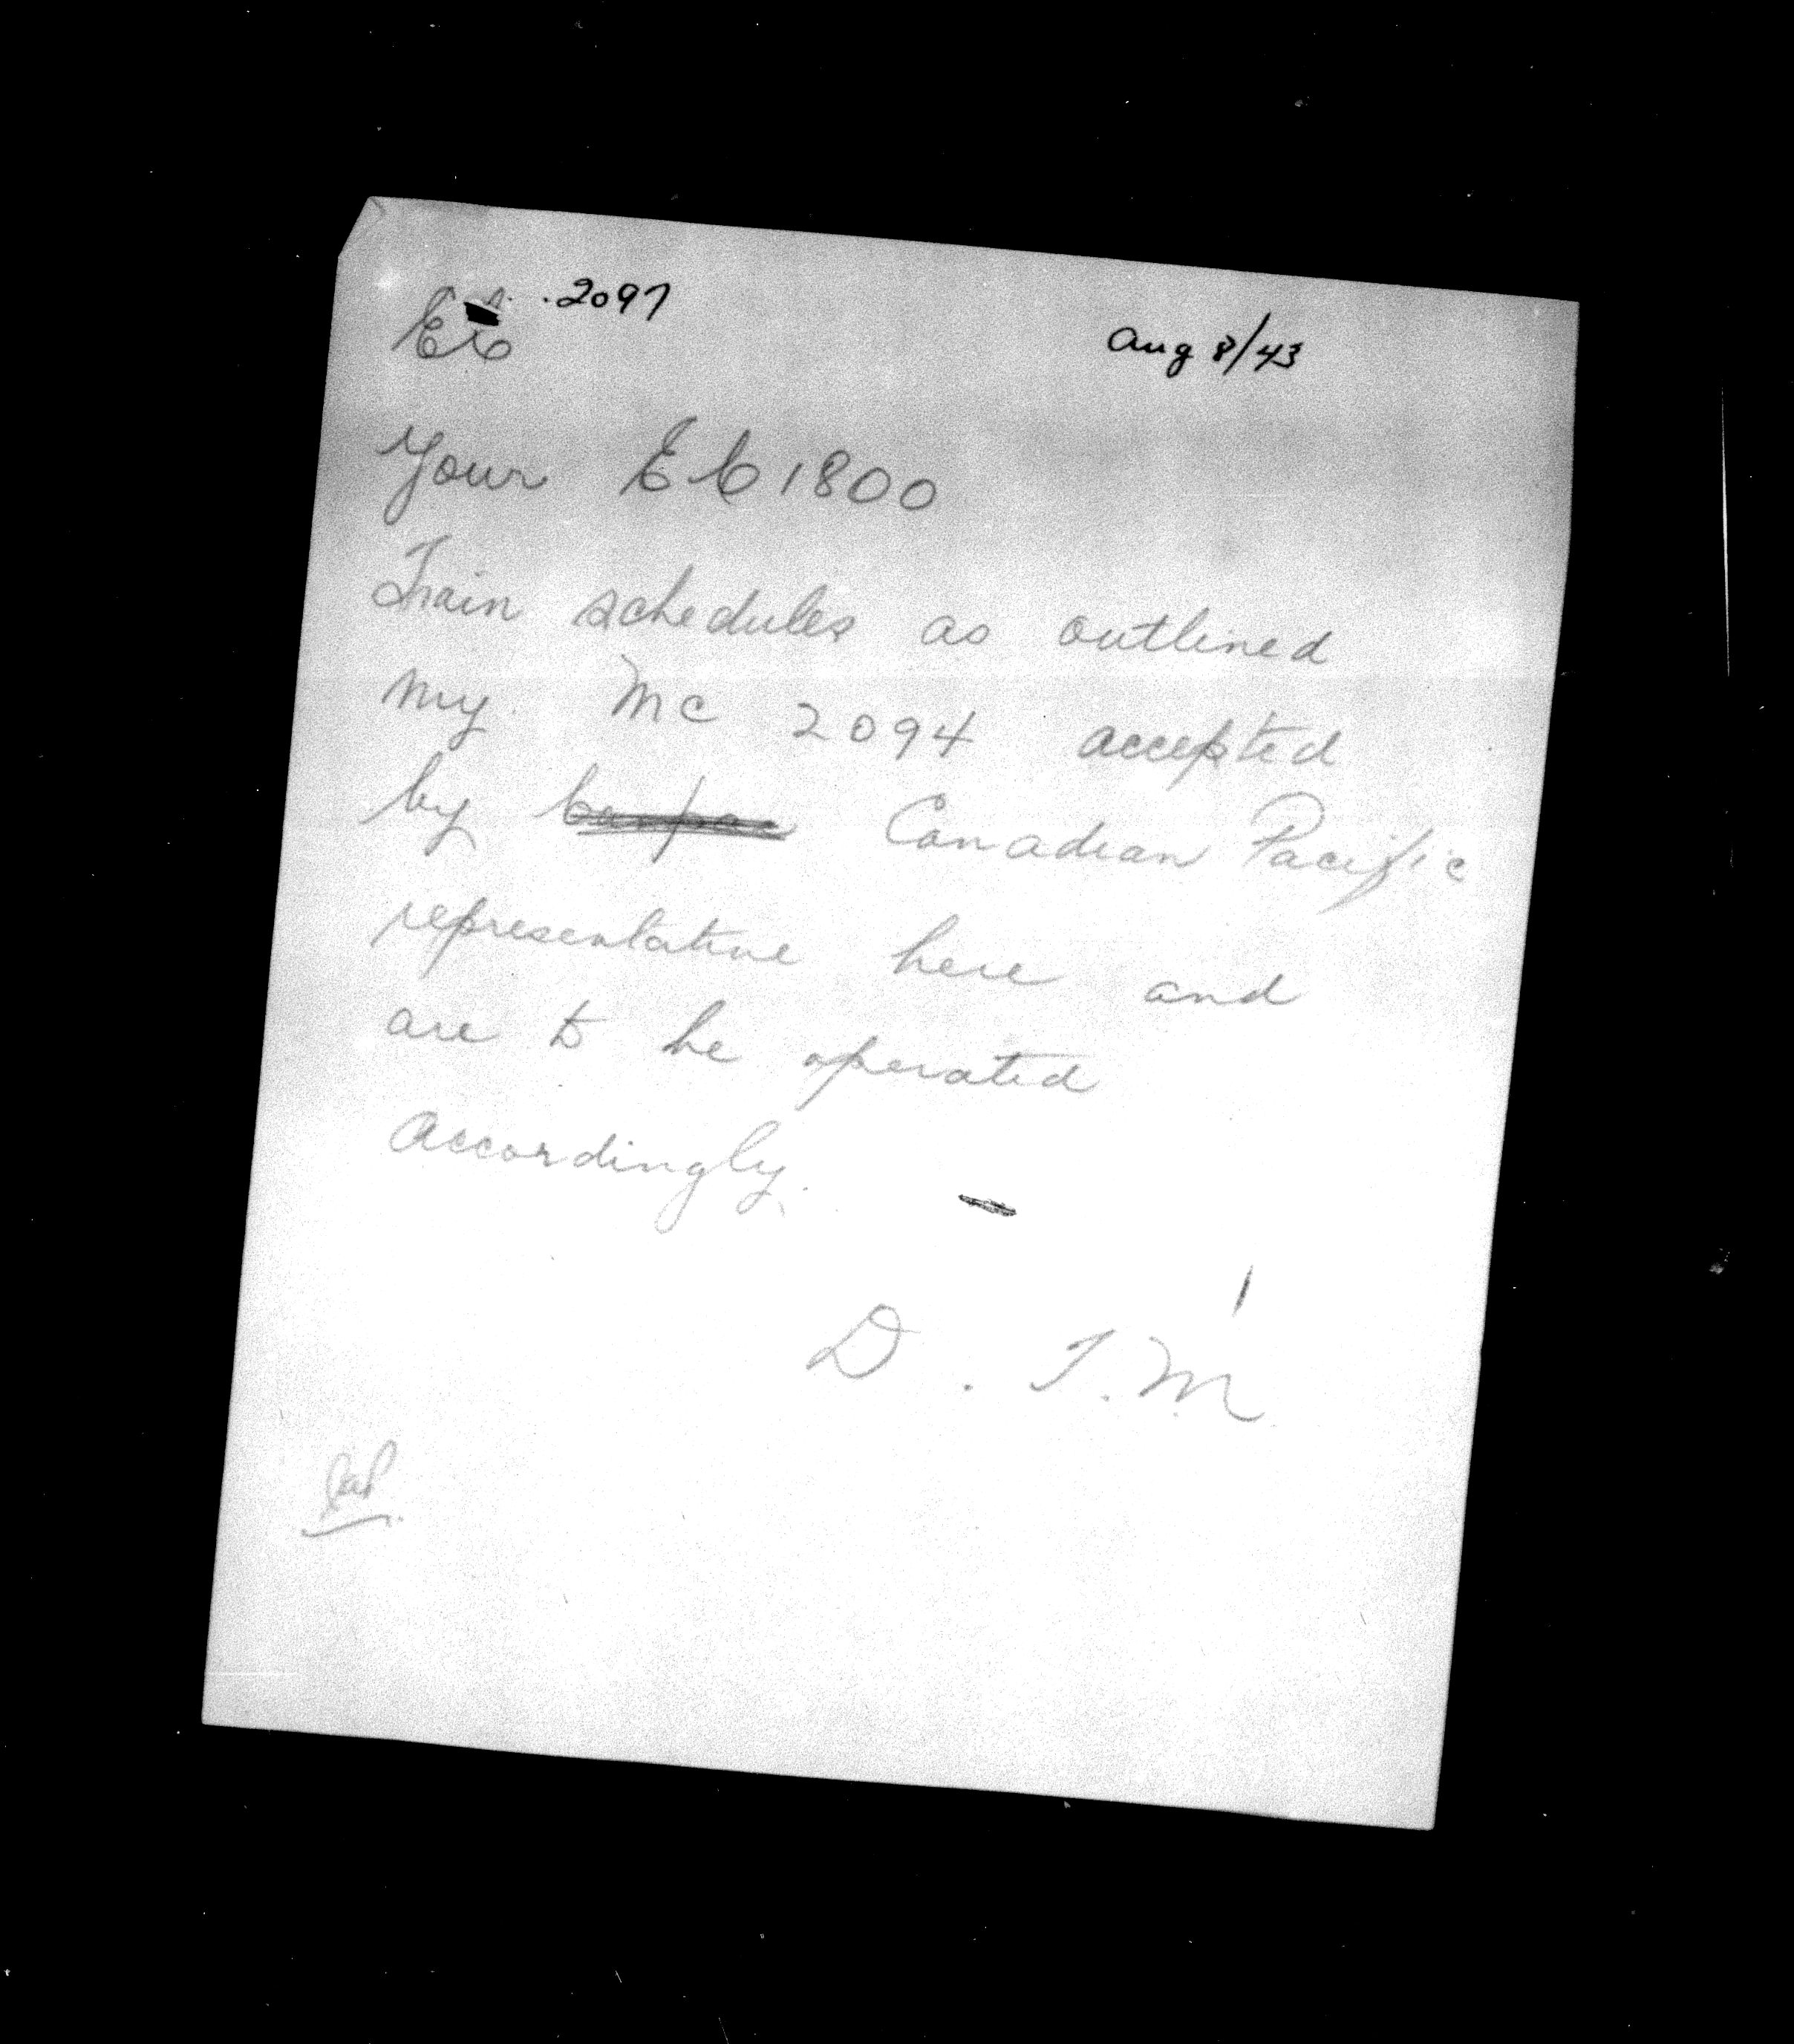 2097
Aug 8/43
EC
Your EC 1800
Train schedules as outlined
my MC 2094 accepted
by Canpac Canadian Pacific
representative here and
are to be operated
accordingly.
D. T. M.